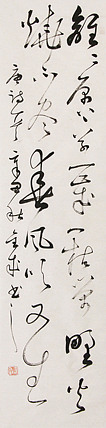 離〻原上草一歲一枯榮野火
燒不盡春風吹又生
唐詩